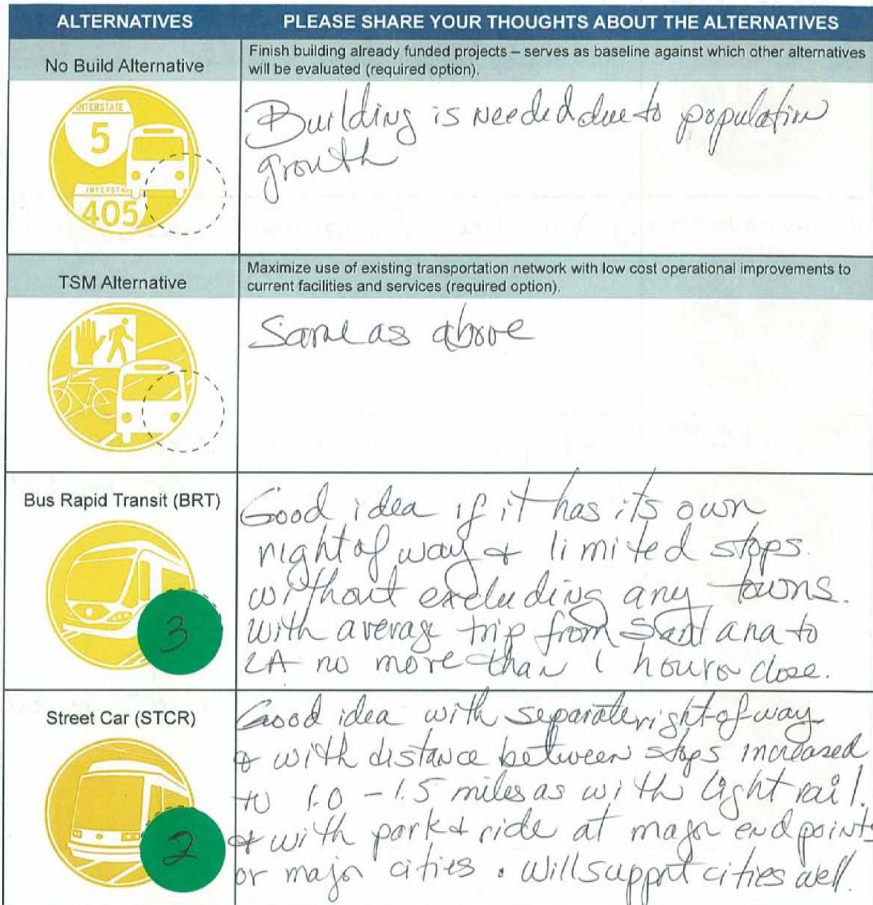 ALTERNATIVES
PLEASE SHARE YOUR THOUGHTS ABOUT THE ALTERNATIVES
No Build Alternative
Finish building already funded projects – serves as baseline against which other alternatives
will be evaluated (required option).
INTERSTATE
5
INTERSTA
405
Building is needed due to population
growth
TSM Alternative
Maximize use of existing transportation network with low cost operational improvements to
current facilities and services (required option).
Same as above
Bus Rapid Transit (BRT)
3
Good idea if it has its own
right of way & limited stops.
without excluding any towns.
with average trip from Sant ana to
LA no more than 1 hour or close.
Street Car (STCR)
2
Good idea with separate right-of-way
& with distance between stops increased
to 1.0 - 1.5 miles as with light rail.
& with park & ride at major endpoints
or major cities. Will support cities well.